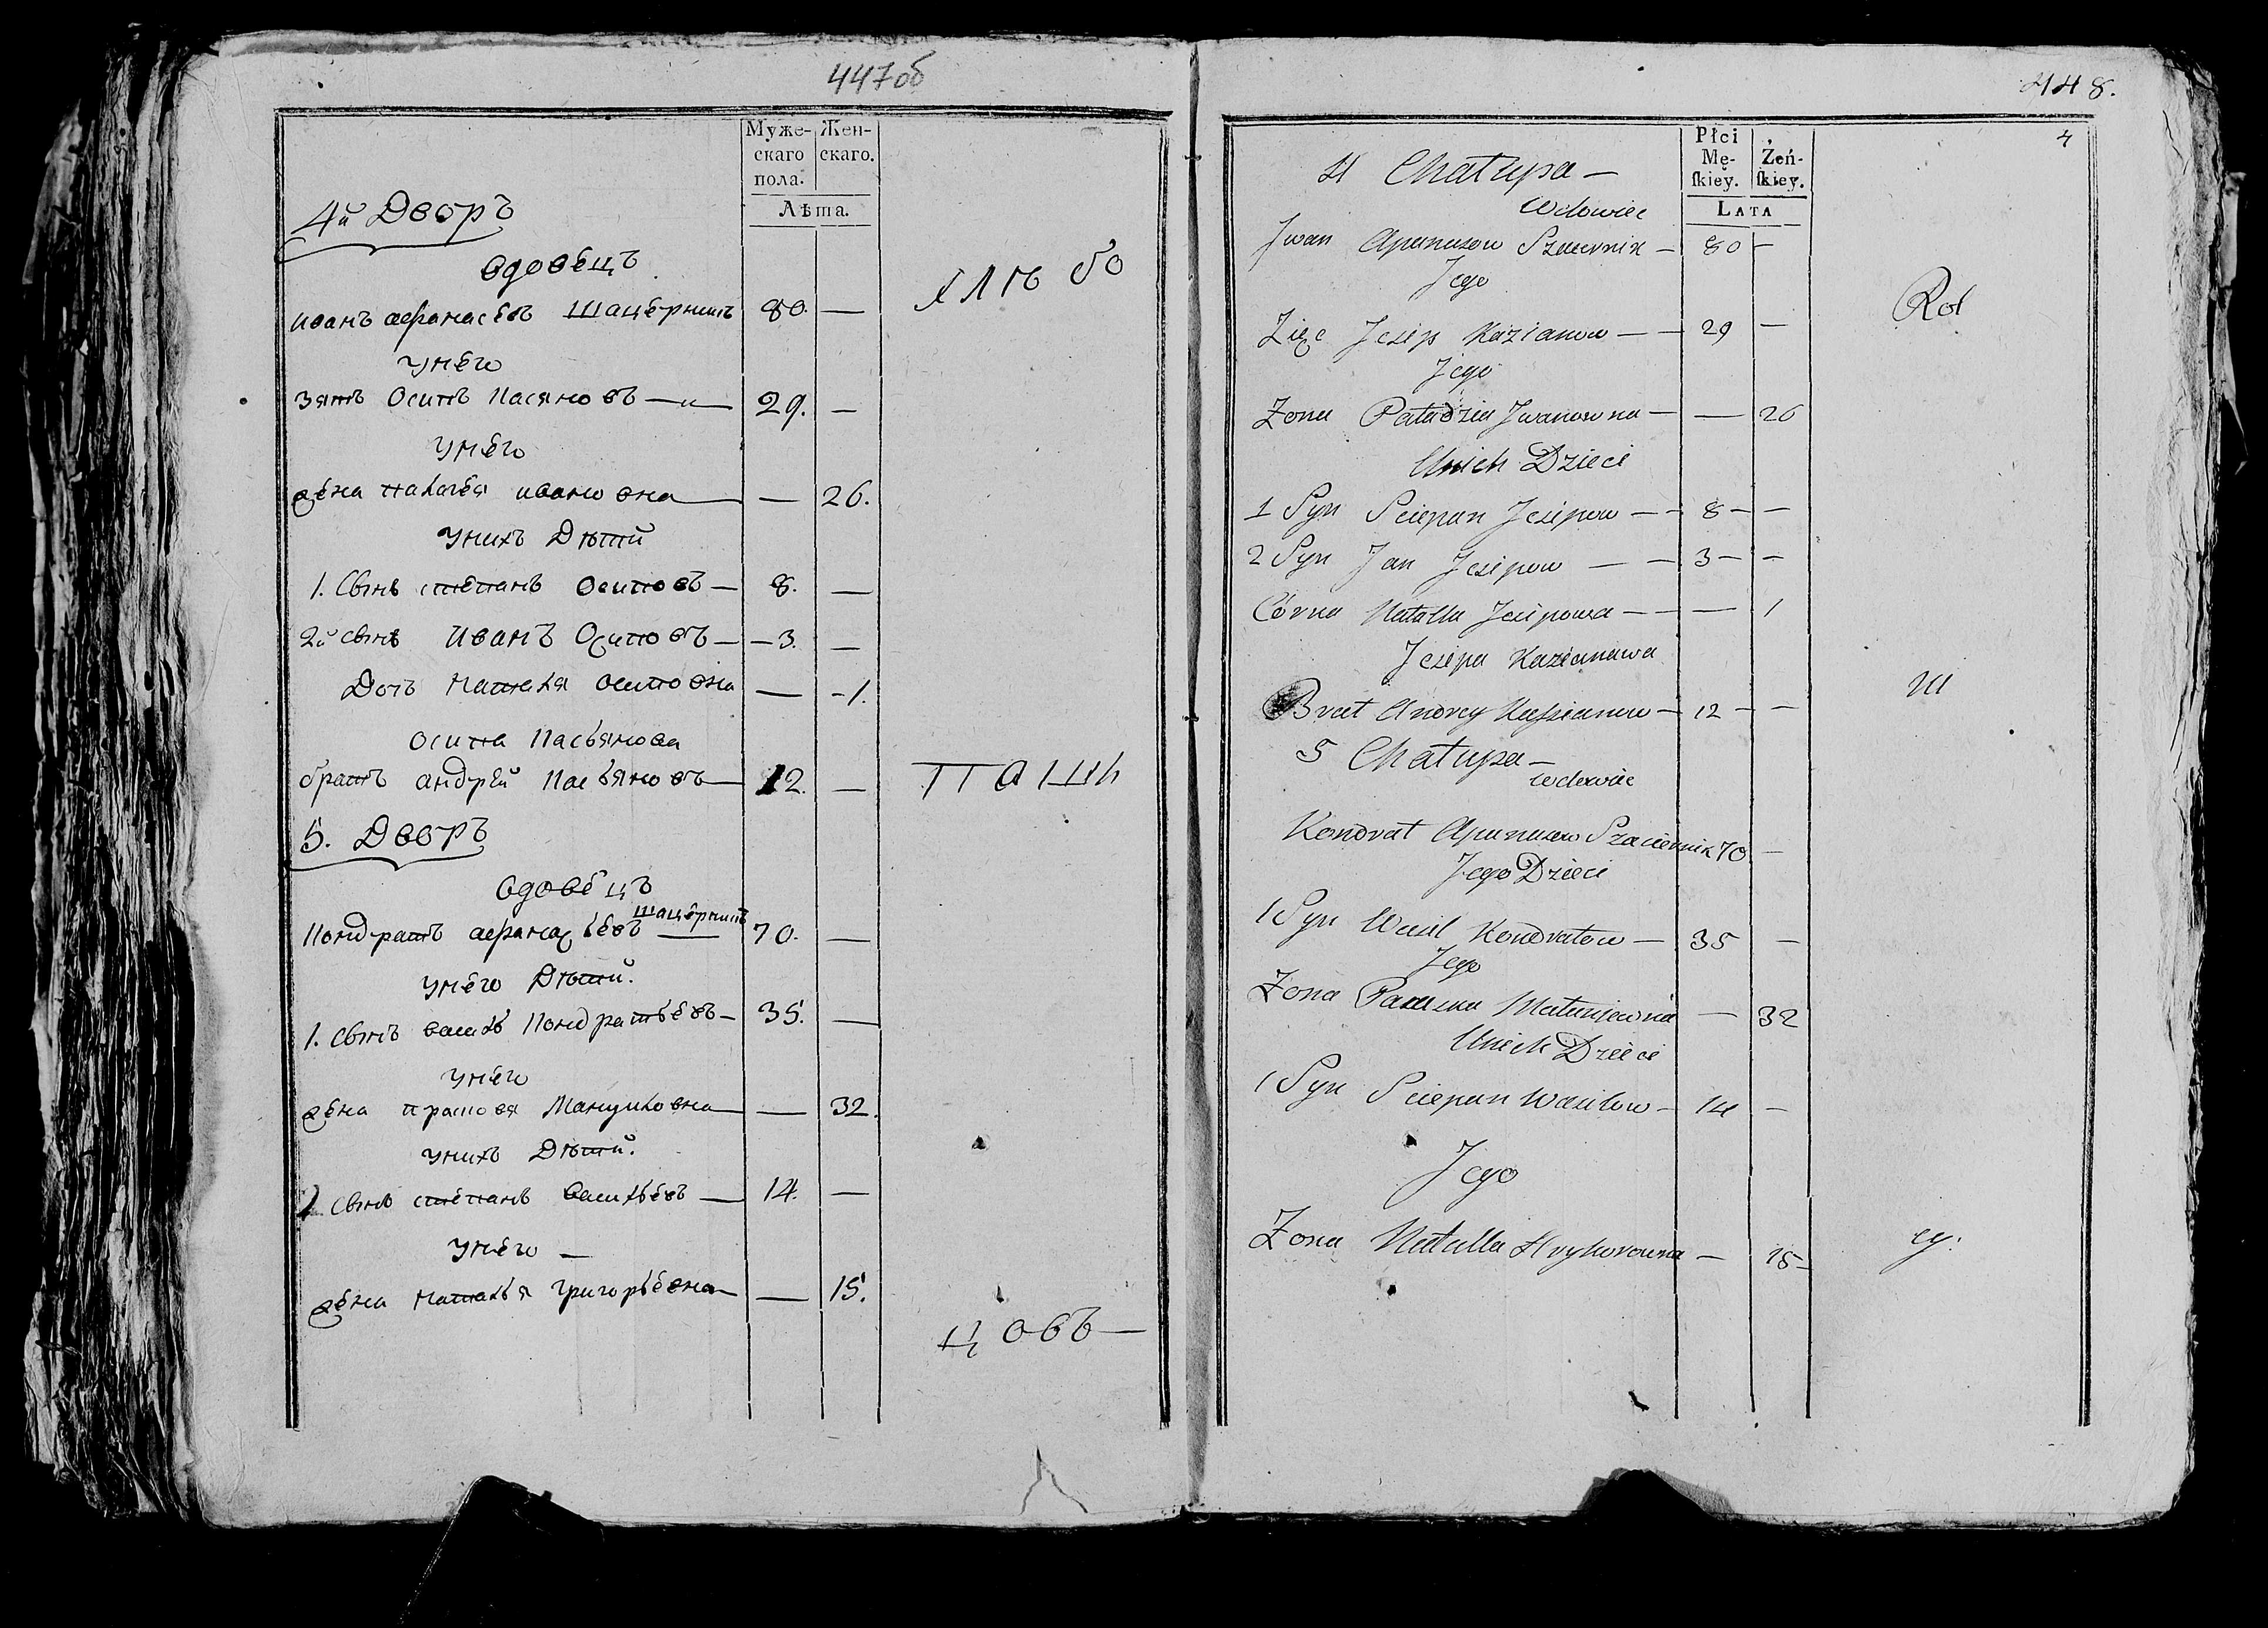 447об
Муже- Жен-
скаго скаго.
пола.
Лѣта.
4й Дворъ
вдовецъ
иванъ афанасевъ Шацерникъ 80. —
хлѣ бо
унего
зять Осипъ Касяновъ — 29. —
унего
жена палагея ивановна — 26.
унихъ Дѣтй
1. Сынъ степанъ Осиповъ — 8. —
2й сынъ Иванъ Осиповъ — 3. —
Дочь Наталя осиповна — 1.
осипа Касьянова
братъ андрей Касьяновъ — 12. —
пашı
5. Дворъ
вдовецъ
Шацерникъ
Кондратъ афанасьевъ — 70. —
унего Дѣтй.
1. Сынъ василь Кондратьевъ — 35. —
унего
жена прасковя Мануиловна — 32.
унихъ Дѣтй.
1 Сынъ степанъ васильевъ — 14. —
унего —
жена наталья григорьевна — 15.
цовъ —
448.
4
Płci
Mę- Żeń-
ſkiey. ſkiey.
LATA
4 Chałupa —
Wdowiec
Jwan Apanasow Szacernik — 80 —
Jego
Rol
Zięc Jesip Kazianow — — 29 —
Jego
Zona Paładzia Jwanowna — — 26
Unich Dzieci
1 Syn Sciepan Jesipow — — 8 — —
2 Syn Jan Jesipow — — 3 — —
Córka Natalla Jesipowa — — — 1
Jesipa Kazianawa
ni
Brat Andrey Kassianow — 12 — —
5 Chałupa —
wdowiec
Kondrat Apanasow Szaciernik 70 —
Jego Dzieci
1 Syn Wasil Kondratow — 35 —
Jego
Zona Paraska Manujłowna — 32
Unich Dzieci
1 Syn Sciepan Wasilow — 14 —
Jego
Zona Natalla Hryhorowna — 15 —
cy.